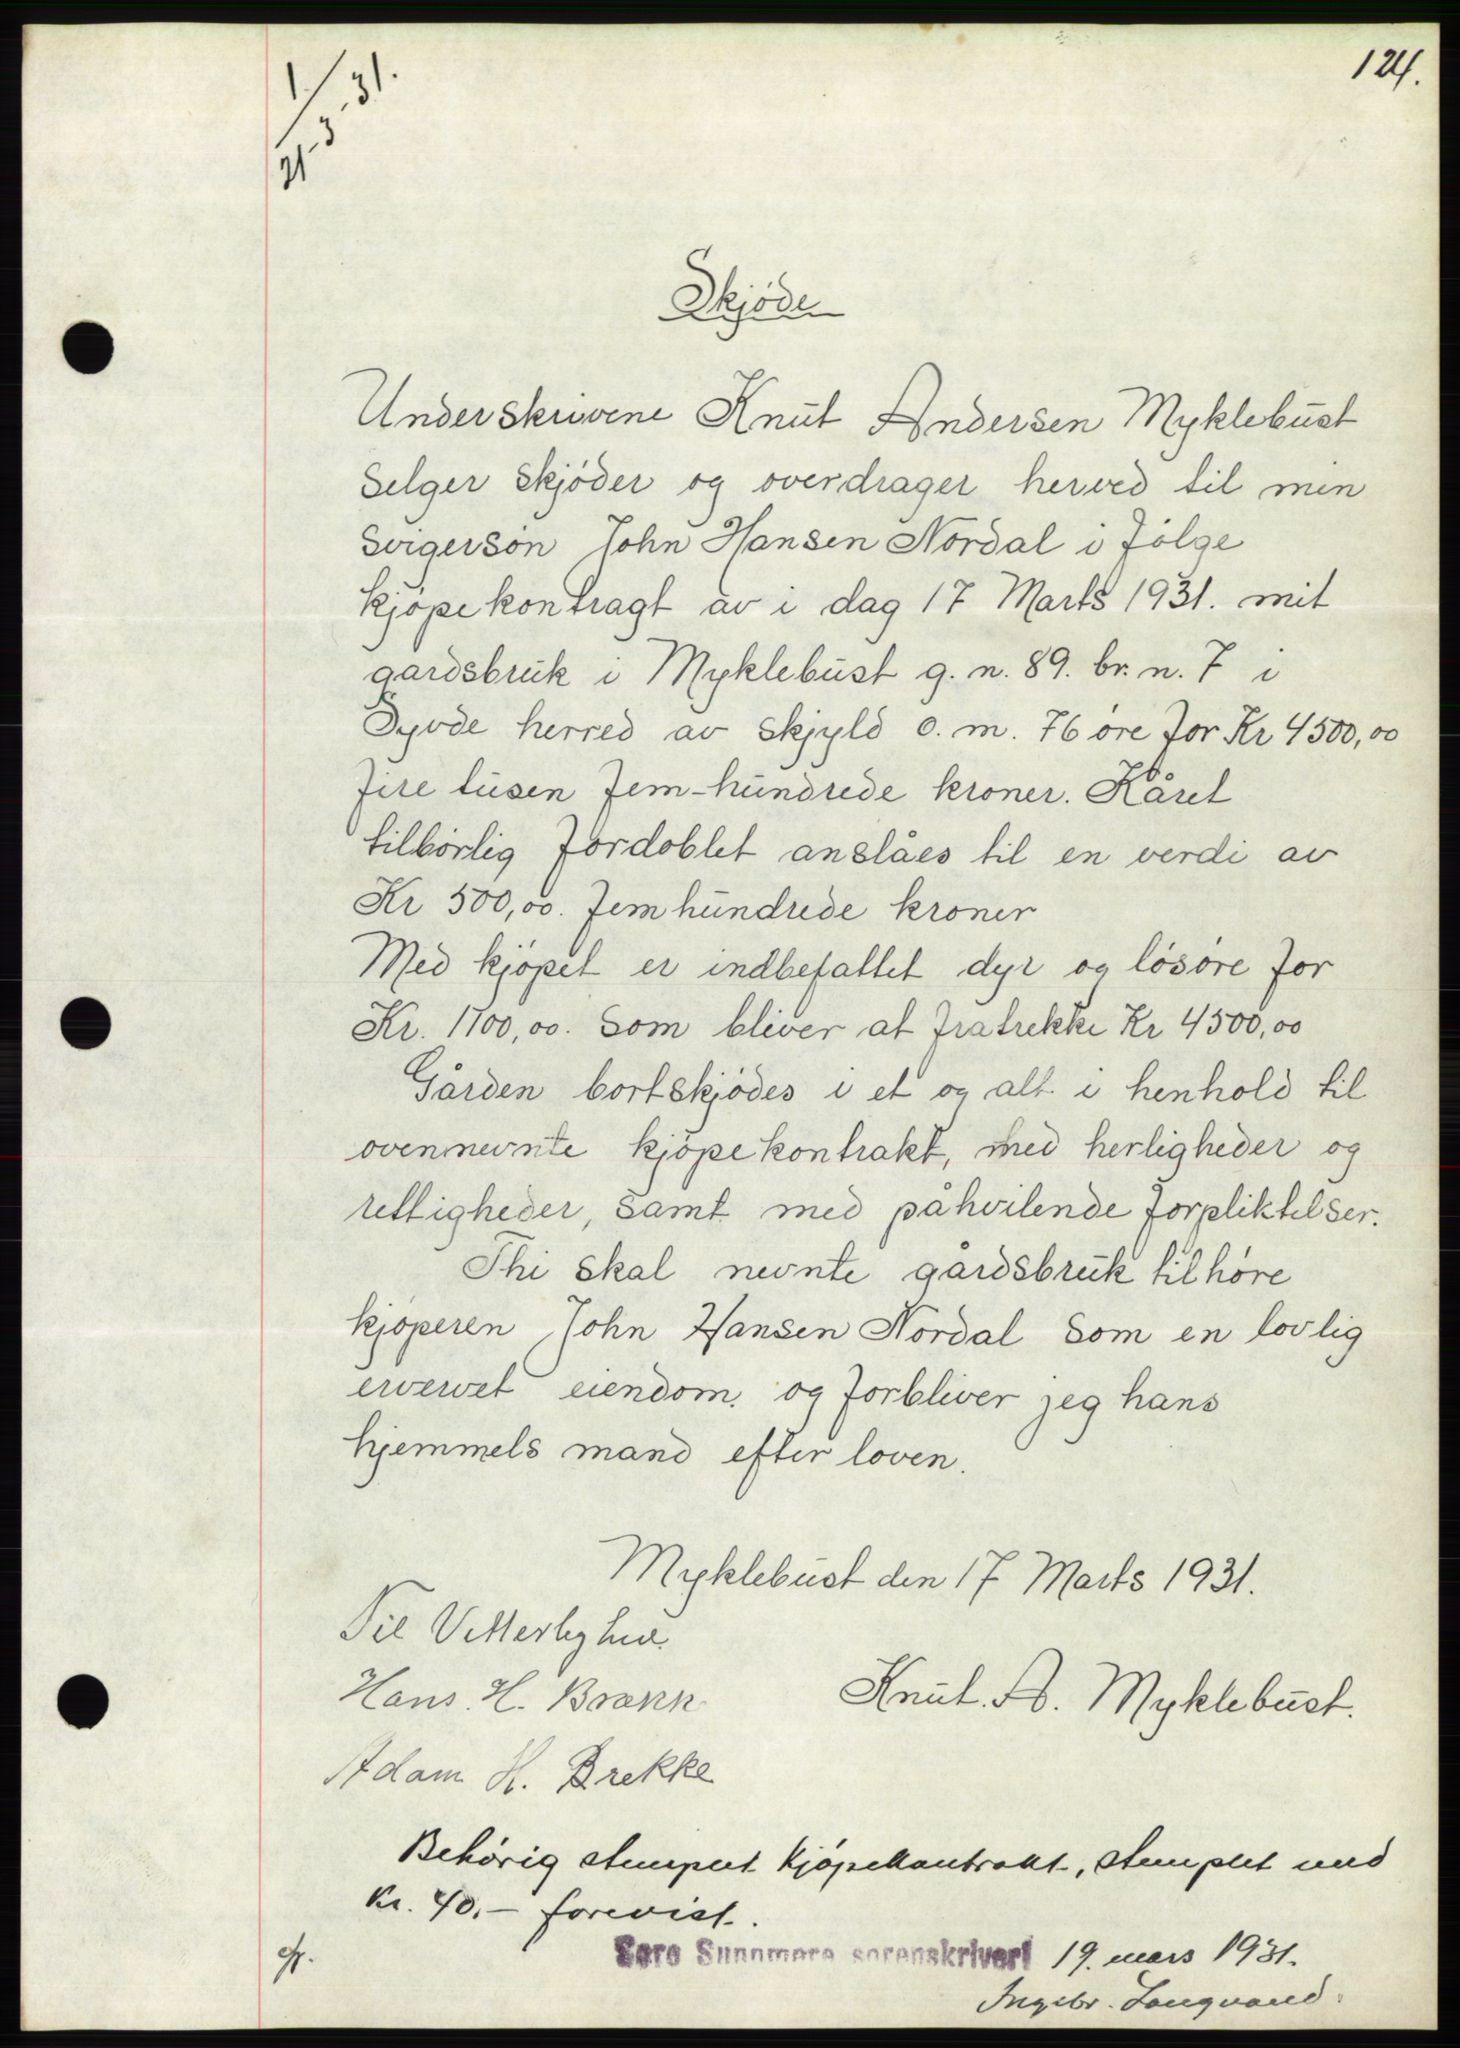 124.
1/21-3-31.
Skjöde
Underskrivene Knut Andersen Myklebust
selger skjöder og overdrager herved til min
svigersön John Hansen Nordal i fölge
kjöpekontragt av i dag 17 Marts 1931. mit
gardsbruk i Myklebust g. n. 89. br. n. 7 i
Syvde herred av skjyld o. m. 76 öre for Kr 4500,00
fire tusen fem-hundrede kroner. Kåret
tilbörlig fordoblet anslåes til en verdi av
Kr 500,00. fem hundrede kroner
Med kjöpet er indbefattet dyr og lösöre for
Kr. 1700,00. som bliver at fratrekke Kr 4500,00
Gården bortskjödes i et og alt i henhold til
ovennevnte kjöpekontrakt, med herligheder og
rettigheder, samt med påhvilende forpliktelser.
Thi skal nevnte gårdsbruk tilhöre
kjöperen John Hansen Nordal som en lovlig
ervervet eiendom. og forbliver jeg hans
hjemmels mand efter loven.
Myklebust den 17 Marts 1931.
Til Vitterlighed.
Hans. H. Brekke
Knut. A. Myklebust.
Adam H. Brekke
Behörig stemplet kjöpekontrakt, stemplet med
Kr. 40.- forevist.
Søre Sunnmøre sorenskriveri 19. mars 1931.
Ingebr. Langvand.